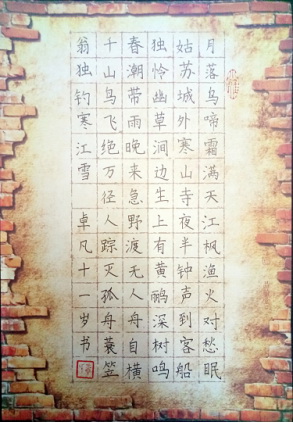 月落乌啼霜满天江枫渔火对愁眠
姑苏城外寒山寺夜半钟声到客船
独怜幽草涧边生上有黄鹂深树鸣
春潮带雨晚来急野渡无人舟自横
千山鸟飞绝万径人踪灭孤舟蓑笠
翁独钓寒江雪 卓凡十一岁书